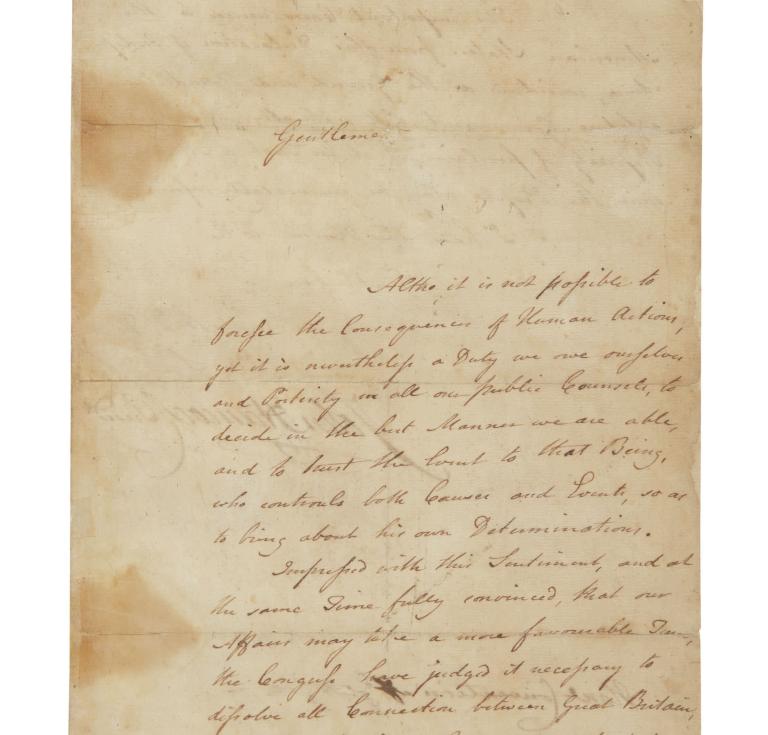 Gentlemen
Altho it is not possible to
foresee the Consequences of Human Actions,
yet it is nevertheless a Duty we owe ourselves
and Posterity in all our public Counsels, to
decide in the best Manner we are able,
and to trust the Event to that Being,
who controuls both Causes and Events, so as
to bring about his own Determinations.
Impressed with this Sentiment, and at
the same Time fully convinced, that our
Affairs may take a more favourable Turn,
the Congress have judged it necessary to
dissolve all Connection between Great Britain,